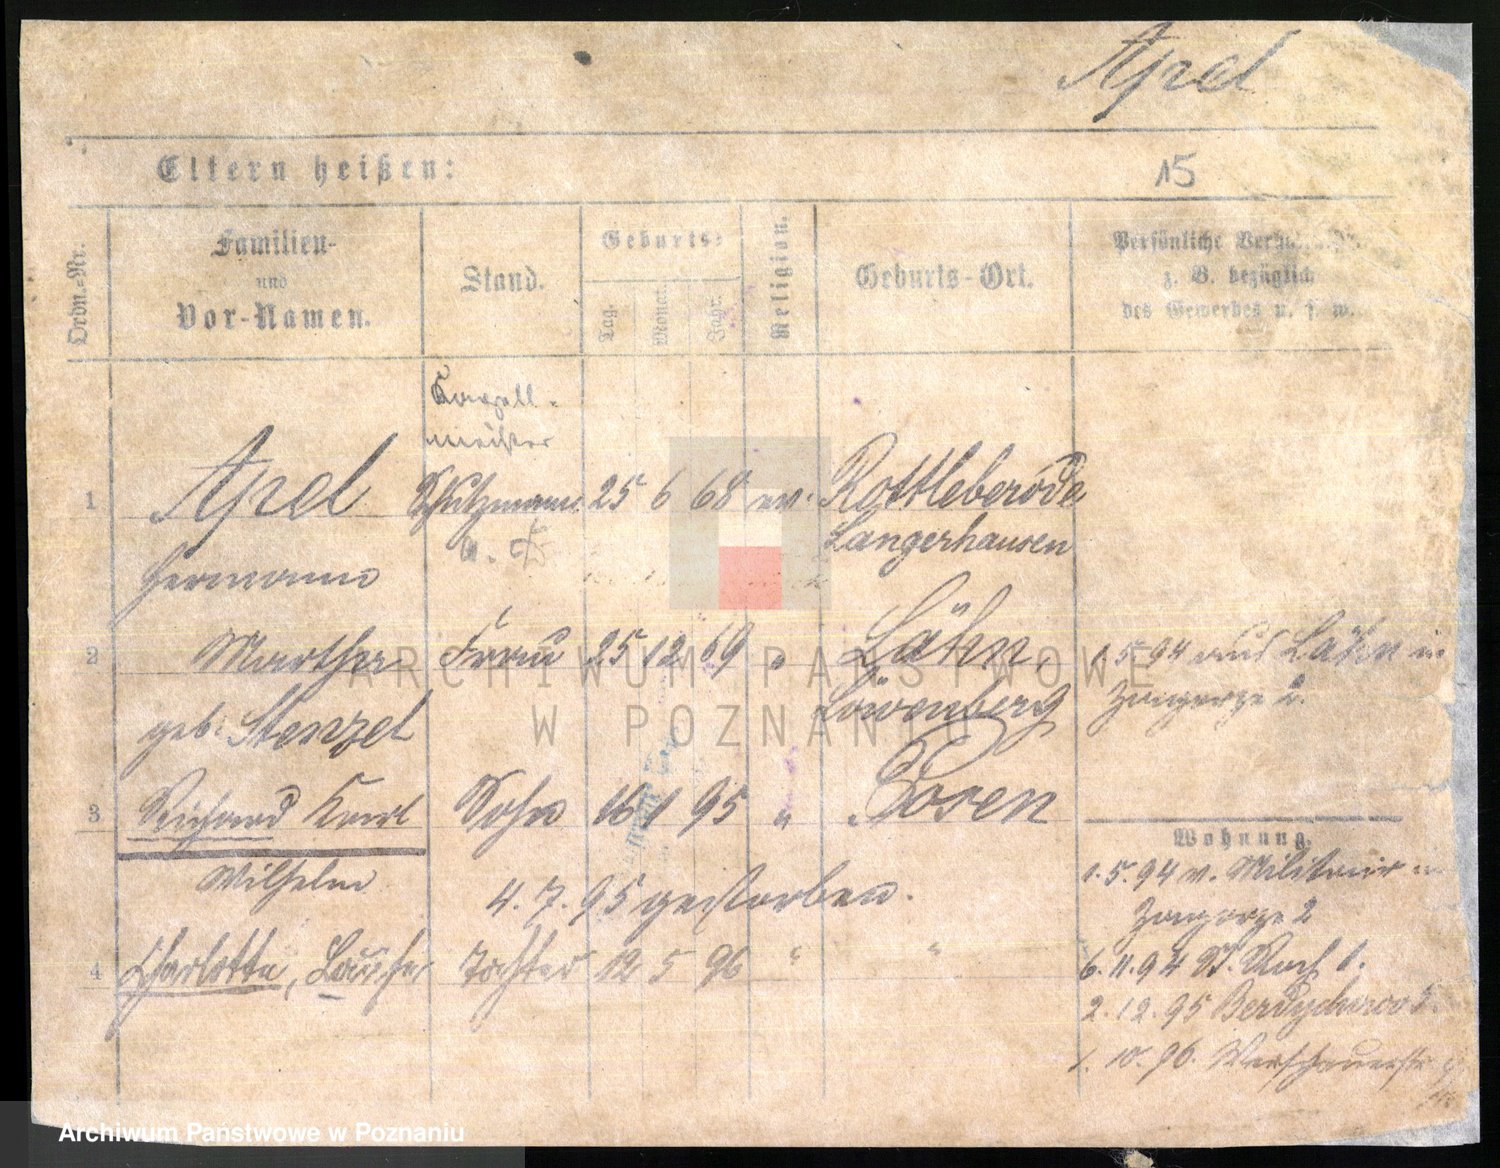 Apel
Eltern heißen:
15
Ordn.-Nr.
Familien-
und
Vor-Namen.
Stand.
Geburts-
Tag.
Monat.
Jahr.
Religion.
Geburts-Ort.
Persönliche
z. B. bezüglich
des Gewerbes u. s. w.
meister
1 Apel Schutzmann 25 6 68 ev. Rottleberode
Langerhausen
Hermann
2 Martha Frau 25 12 69 " Lähn, 1.5.94 aus Lähn in
geb. Stenzel Löwenberg Zawgorze 2.
3 Richard Karl Sohn 16 1 95 " Posen
Wohnung.
Wilhelm 1.5.94 v. Militair in
4.7.95 gestorben. Zawgorze 2
4 Charlotte, Louise Tochter 12 5 96 " " 6.11.94 St. Roch 1.
2.12.95 Berdychowo
1.10.96. Warschauerstr
ARCHIWUM PAŃSTWOWE
W POZNANIU
Archiwum Państwowe w Poznaniu